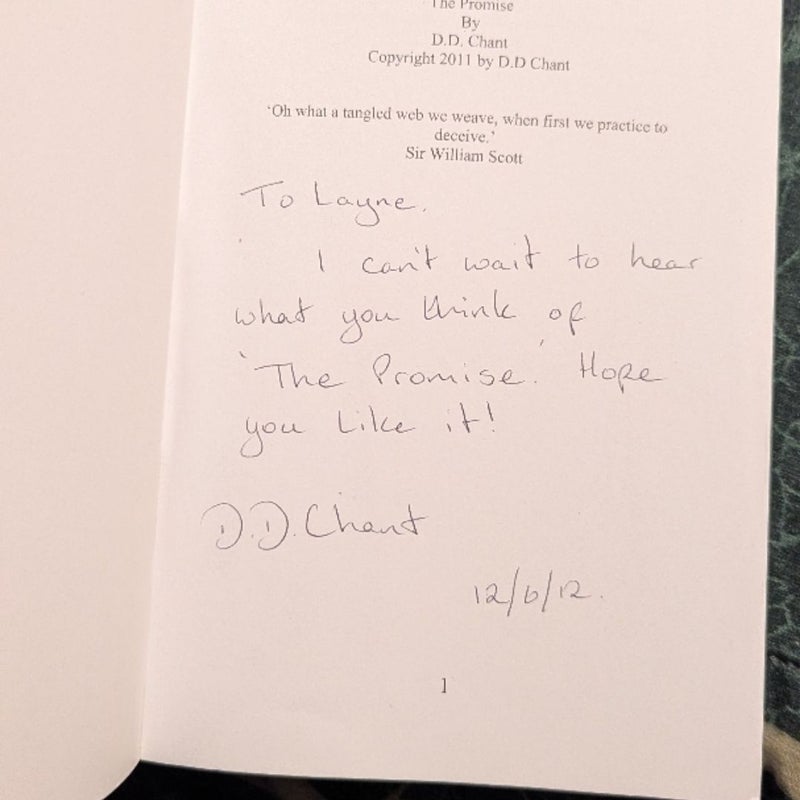 The Promise
By
D.D. Chant
Copyright 2011 by D.D Chant
'Oh what a tangled web we weave, when first we practice to
deceive.'
Sir William Scott
To Layne,
I can't wait to hear
what you think of
'The Promise.' Hope
you like it!
D.D.Chant
12/6/12.
1